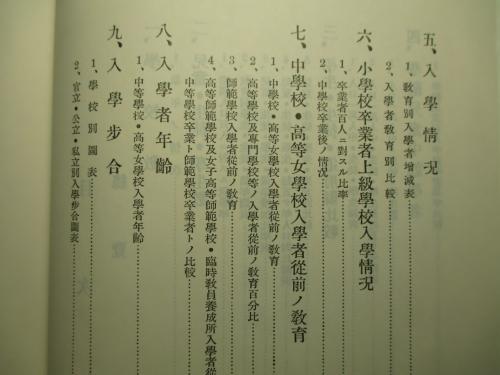 五、入學情況
1、敎育別入學者增減表
2、入學者敎育別比較
六、小學校卒業者上級學校入學情況
1、卒業者百人ニ對スル比率
2、中學校卒業後ノ情況
七、中學校・高等女學校入學者從前ノ敎育
1、中學校・高等女學校入學者從前ノ敎育
2、高等學校及專門學校等ノ入學者從前ノ敎育百分比
3、師範學校入學者從前ノ敎育
4、高等師範學校及女子高等師範學校・臨時敎員養成所入學者從
中等學校卒業ト師範學校卒業者トノ比較
八、入學者年齡
1、中等學校・高等女學校入學者年齡
九、入學步合
1、學校別圖表
2、官立・公立・私立別入學步合圖表